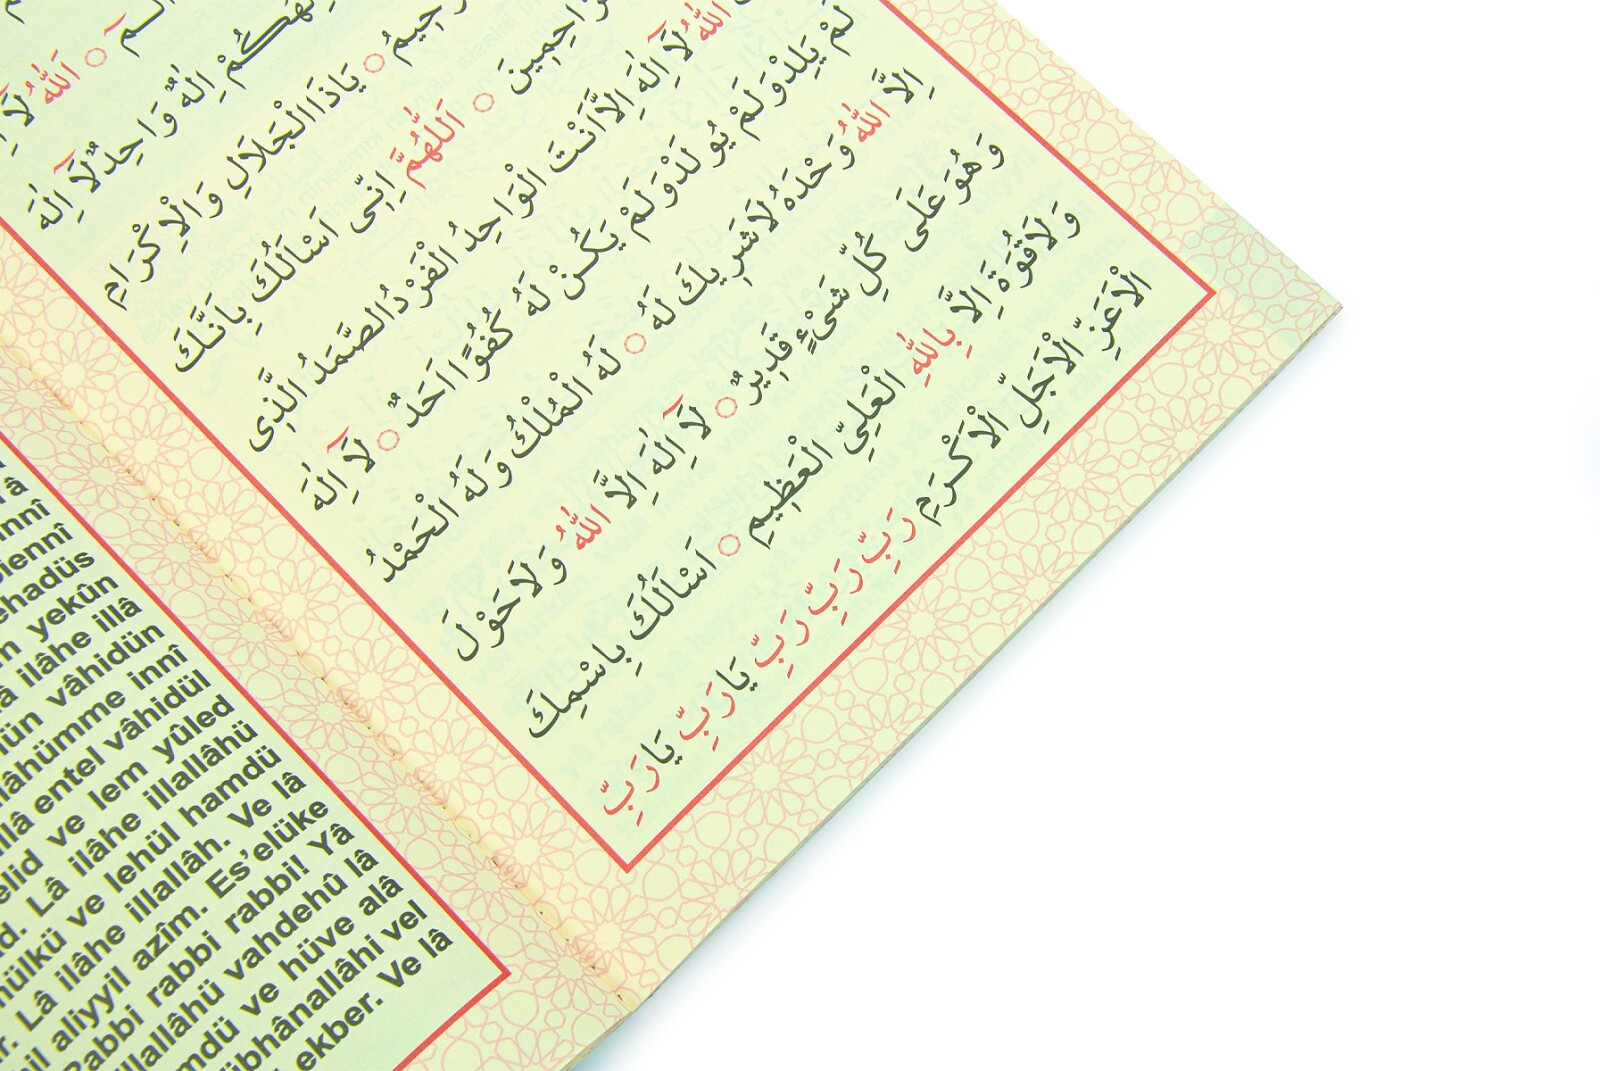 الٓمٓ ○ اَللّٰهُ لَٓا
اِلٰهٌ وَاحِدٌ لَٓا اِلٰهَ
○ يَاذَا الْجَلَالِ وَالْاِكْرَامِ
○ اَللّٰهُمَّ اِنِّى اَسْاَلُكَ بِاَنَّكَ
اللّٰهُ لَٓا اِلٰهَ اِلَّا اَنْتَ الْوَاحِدُ الْفَرْدُ الصَّمَدُ الَّذِى
لَمْ يَلِدْ وَلَمْ يُولَدْ وَلَمْ يَكُنْ لَهُ كُفُوًا اَحَدٌ ○ لَٓا اِلٰهَ
اِلَّا اللّٰهُ وَحْدَهُ لَا شَرِيكَ لَهُ ○ لَهُ الْمُلْكُ وَلَهُ الْحَمْدُ
وَهُوَ عَلَى كُلِّ شَىْءٍ قَدِيرٌ ○ لَٓا اِلٰهَ اِلَّا اللّٰهُ وَلَا حَوْلَ
وَلَا قُوَّةَ اِلَّا بِاللّٰهِ الْعَلِيِّ الْعَظِيمِ ○ اَسْاَلُكَ بِاسْمِكَ
الْاَعَزِّ الْاَجَلِّ الْاَكْرَمِ رَبِّ رَبِّ رَبِّ يَا رَبِّ يَا رَبِّ
yekûn
ilâhe illâ
vâhidün
innî
entel vâhidül
ve lem yûled
Lâ ilâhe illallâhü
ve lehül hamdü
Lâ ilâhe illallâh. Ve lâ
aliyyil azîm. Es'elüke
rabbi rabbi! Yâ
vahdehû lâ
ve hüve alâ
vel
ekber. Ve lâ